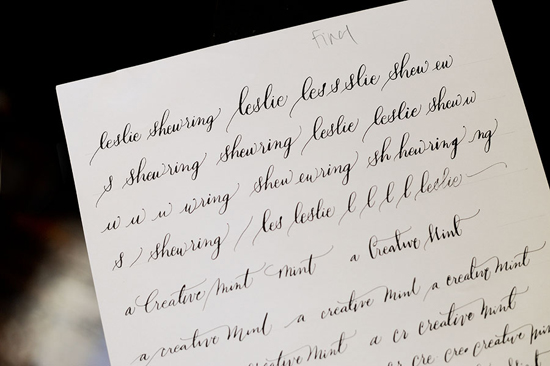 Find
leslie shewring leslie les s slie shew ew
s shewring shewring leslie leslie shew w
w w w wring shew ewring sh hewring ng
s / shewring / les leslie l l l l leslie
a Creative Mint Mint a Creative Mint
a creative Mint a creative Mint a creative Mint
creative Mint a cr creative Mint
cr cre creative